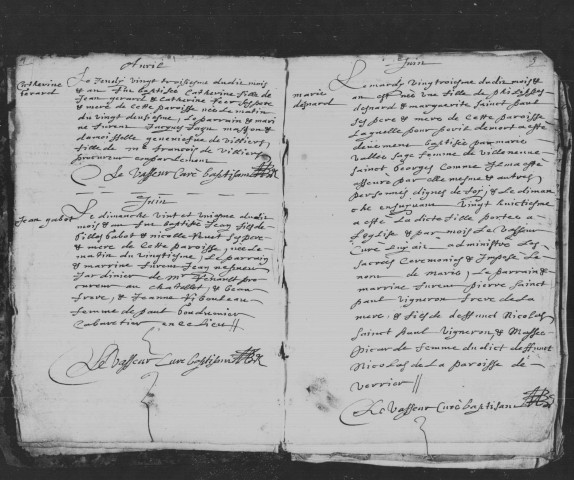 Avril
Catherine
Le Jeudy vingt troisiesme dudit mois
& an fut baptisée Catherine fille de
Jean gerard & Catherine ses pere
& mere de cette paroisse née le matin
du vingt deusiesme, Le parrain & mari
ne furent Jacques masson &
damoiselle geneviefve de villiers
fille de Mr francois de villiers
procureur en parlement
Le Vasseur Curé baptisant
Juin
Jean gabot
Le dimanche vint et uniesme dudit
mois & an fut baptisé Jean fils de
gilles gabot & nicolle ses pere
& mere de cette paroisse, née le
matin du vingtiesme, Le parrain
& marrine furent Jean
Jardinier de Mr pro
cureur au Chastellet, & beau
frere, & Jeanne
femme de paul
Cabaretier en ce lieu //
Le Vasseur Curé baptisant
Juin
marie
despard
Le mardy vingtroisme dudit mois &
an est née une fille de philippes
despard & marguerite sainct paul
ses pere & mere de cette paroisse
Laquelle pour peril de mort a esté
deuement baptisée par marie
vallée sage femme de villeneuve
sainct Georges Comme Il m'a esté
asseuré par elle mesme & autres
personnes dignes de foy, & le diman
che ensuivant vingt huictiesme
a esté La dicte fille portée a
l'eglise & par mois Le Vasseur
Curé administré Les
sacrées Ceremonies & Imposé Le
nom de Marie, Le parrain &
marrine furent pierre sainct
paul vigneron frere de La
mere, & fils de deffunct Nicolas
sainct paul vigneron, &
picar de femme du dict deffunct
Nicolas de La paroisse de
verrier //
Le Vasseur Curé baptisant